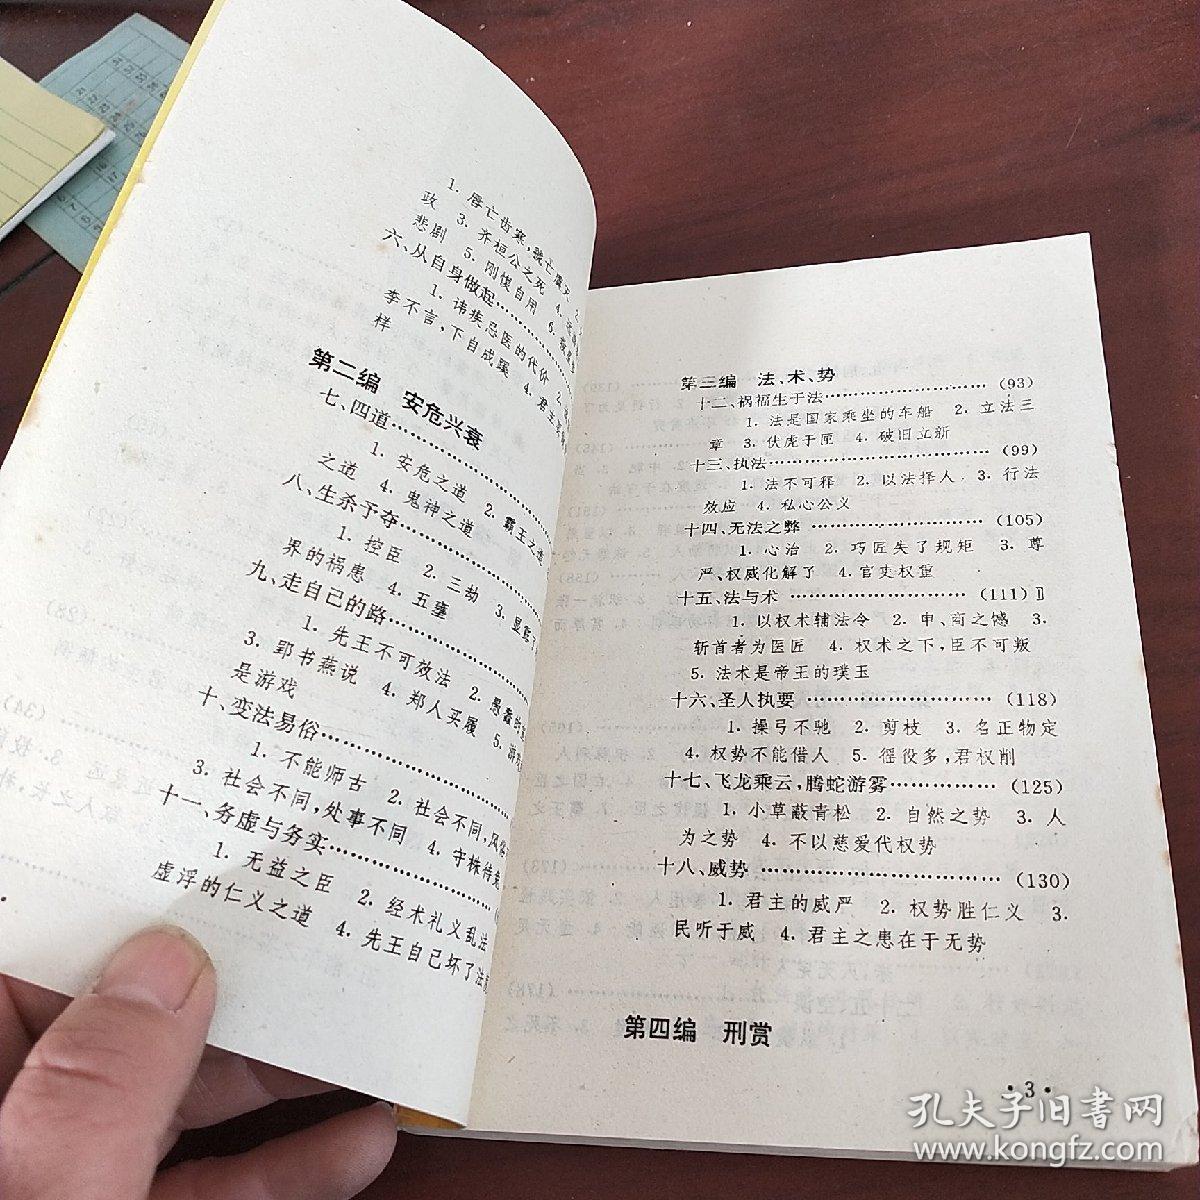 1. 唇亡齿寒，虢亡虞灭
政 3. 齐桓公之死 4.
悲剧 5. 刚愎自用 6.
六、从自身做起……………
1. 讳疾忌医的代价
李不言，下自成蹊 4. 君主
样
第二编 安危兴衰
七、四道……………
1. 安危之道 2. 霸王之
之道 4. 鬼神之道
八、生杀予夺……………
1. 控臣 2. 三劫 3.
界的祸患 4. 五壅
九、走自己的路……………
1. 先王不可效法 2. 愚蠢的
3. 郢书燕说 4. 郑人买履 5. 游
是游戏
十、变法易俗……………
1. 不能师古 2. 社会不同，风俗
3. 社会不同，处事不同 4. 守株待兔
十一、务虚与务实……………
1. 无益之臣 2. 经术礼义乱法
虚浮的仁义之道 4. 先王自己坏了法
第三编 法、术、势
十二、祸福生于法……………(93)
1. 法是国家乘坐的车船 2. 立法三
章 3. 伏虎于匣 4. 破旧立新
十三、执法……………(99)
1. 法不可释 2. 以法择人 3. 行法
效应 4. 私心公义
十四、无法之弊……………(105)
1. 心治 2. 巧匠失了规矩 3. 尊
严、权威化解了 4. 官吏权重
十五、法与术……………(111)
1. 以权术辅法令 2. 申、商之憾 3.
斩首者为医匠 4. 权术之下，臣不可叛
5. 法术是帝王的璞玉
十六、圣人执要……………(118)
1. 操弓不驰 2. 剪枝 3. 名正物定
4. 权势不能借人 5. 徭役多，君权削
十七、飞龙乘云，腾蛇游雾……………(125)
1. 小草蔽青松 2. 自然之势 3. 人
为之势 4. 不以慈爱代权势
十八、威势……………(130)
1. 君主的威严 2. 权势胜仁义 3.
民听于威 4. 君主之患在于无势
第四编 刑赏
·3·
孔夫子旧书网
www.kongfz.com